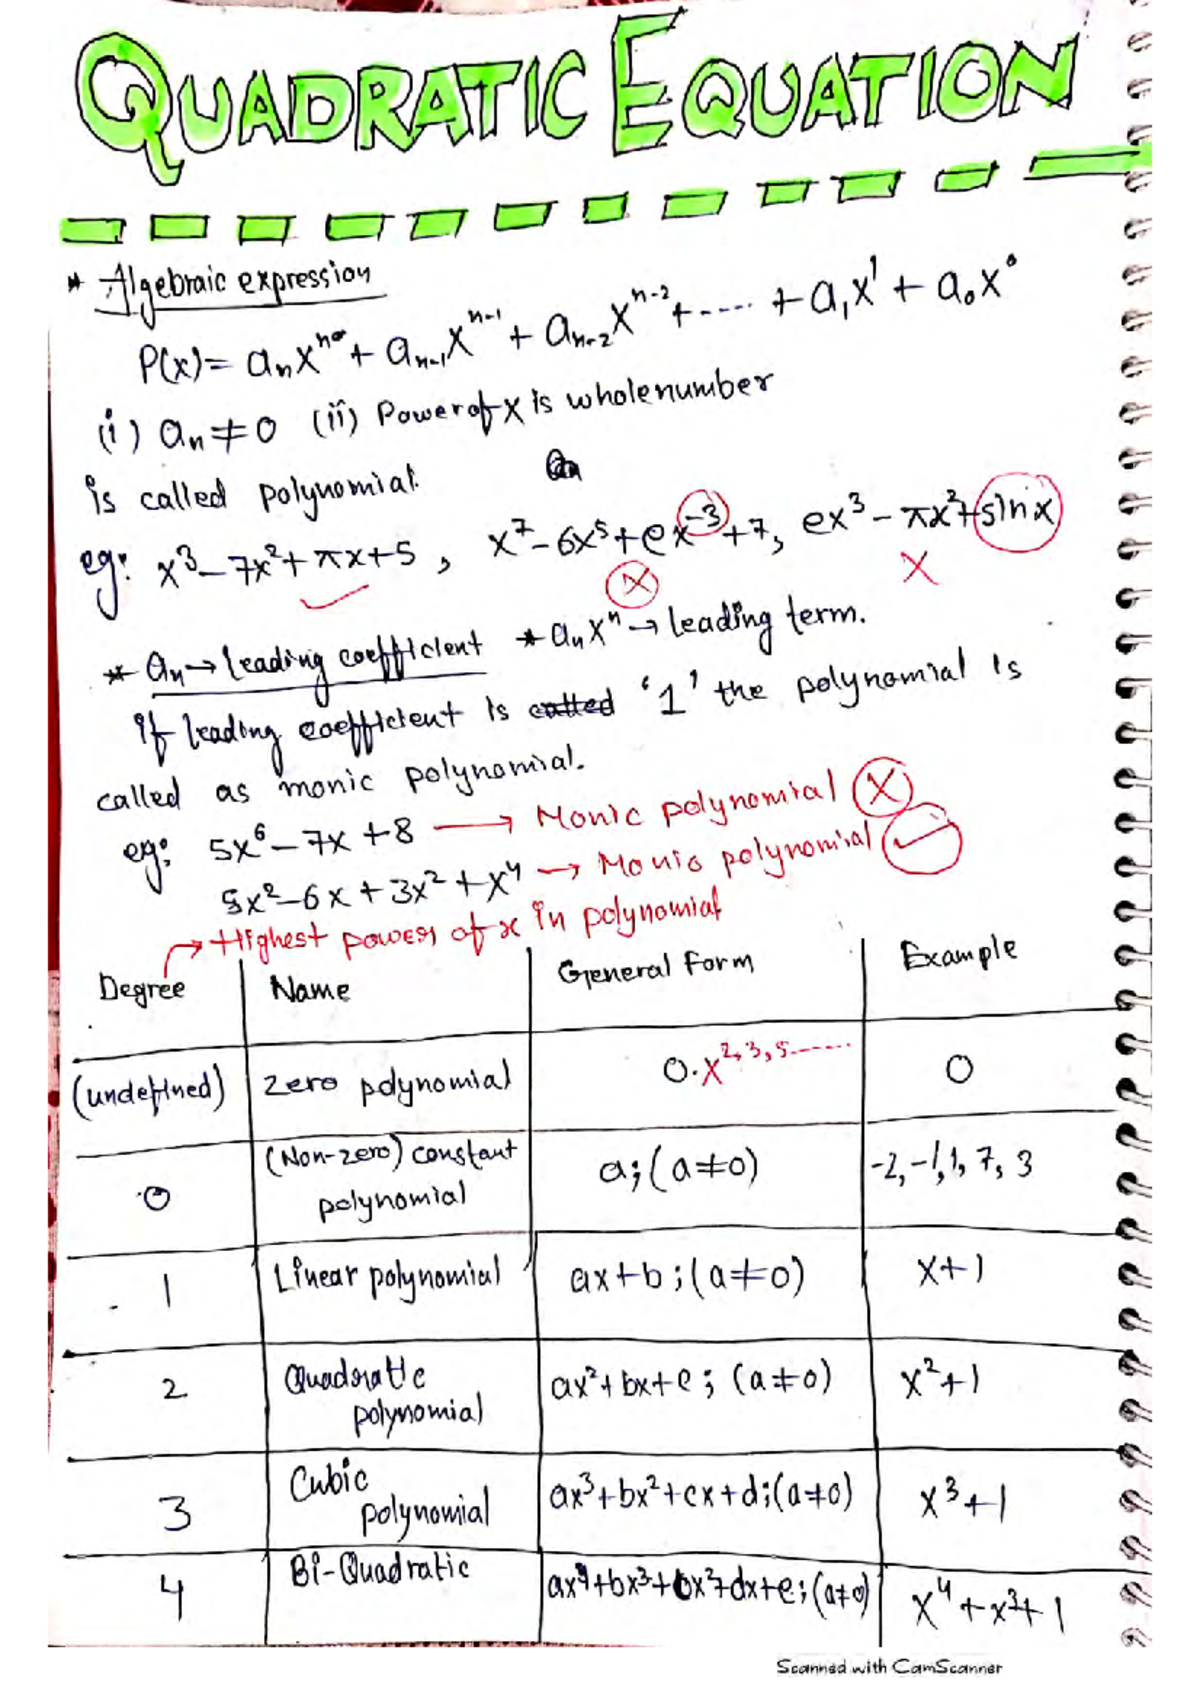 QUADRATIC EQUATION
* Algebraic expression
P(x) = aₙxⁿ + aₙ₋₁xⁿ⁻¹ + aₙ₋₂xⁿ⁻² + ..... + a₁x¹ + a₀x⁰
(i) aₙ ≠ 0 (ii) Power of x is whole number
is called polynomial.
eg: x³ – 7x² + πx + 5 , x⁷ – 6x⁵ + ex⁻³ + 7, ex³ – πx² + sinx
* aₙ → leading coefficient * aₙxⁿ → leading term.
if leading coefficient is called '1' the polynomial is
called as monic polynomial.
eg: 5x⁶ – 7x + 8 → Monic polynomial
5x² – 6x + 3x² + x⁴ → Monic polynomial
→ Highest power of x in polynomial
Degree Name General Form Example
(undefined) Zero polynomial 0·x²,³,⁵...... 0
0 (Non-zero) constant polynomial a; (a≠0) -2, -1, 1, 7, 3
1 Linear polynomial ax+b ; (a≠0) x+1
2 Quadratic polynomial ax²+bx+c ; (a≠0) x²+1
3 Cubic polynomial ax³+bx²+cx+d ; (a≠0) x³+1
4 Bi-Quadratic ax⁴+bx³+cx²+dx+e ; (a≠0) x⁴+x³+1
Scanned with CamScanner